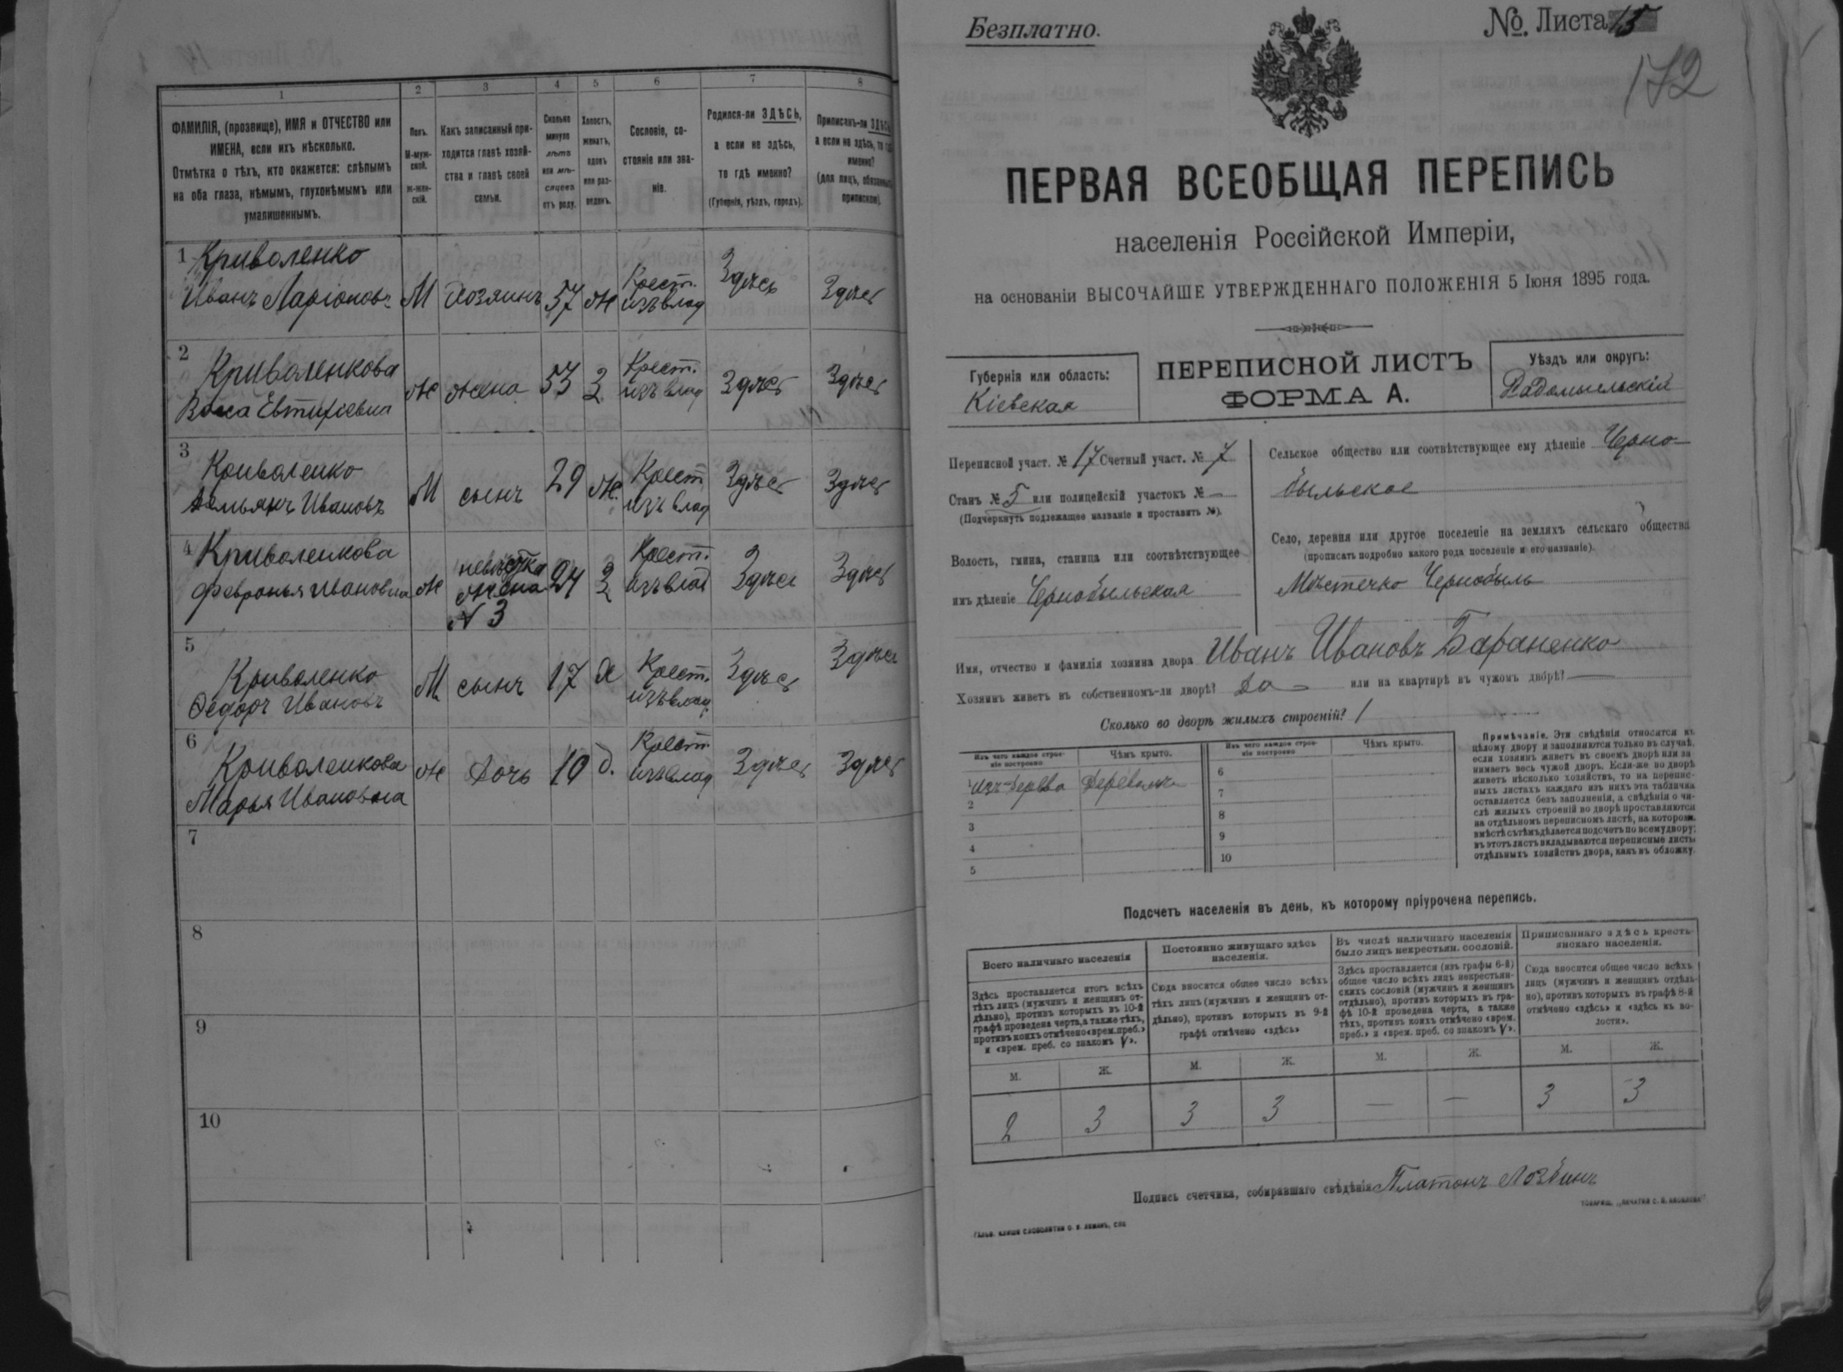 1 2 3 4 5 6 7 8
ФАМИЛІЯ, (прозвище), ИМЯ и ОТЧЕСТВО или
ИМЕНА, если ихъ нѣсколько.
Отмѣтка о тѣхъ, кто окажется: слѣпымъ
на оба глаза, нѣмымъ, глухонѣмымъ или
умалишеннымъ.
Полъ.
М-муж-
ской.
ж-жен-
скій.
Какъ записанный при-
ходится главѣ хозяй-
ства и главѣ своей
семьи.
Сколько
минуло
лѣтъ
или мѣ-
сяцевъ
отъ роду.
Холостъ,
женатъ,
вдовъ
или раз-
веденъ.
Сословіе, со-
стояніе или зва-
ніе.
Родился-ли ЗДѢСЬ,
а если не здѣсь,
то гдѣ именно?
(Губернія, уѣздъ, городъ).
Приписанъ-ли ЗДѢСЬ,
а если не здѣсь, то гдѣ
именно?
(для лицъ, обязанныхъ
припискою).
1 Криволенко
Иванъ Ларіоновъ М Хозяинъ 57 Ж Крест. изъ влад Здѣсь Здѣсь
2 Криволенкова
Васса Евтихіевна Ж Жена 53 З Крест. изъ влад Здѣсь Здѣсь
3 Криволенко
Демьянъ Ивановъ М сынъ 29 Ж. Крест. изъ влад Здѣсь Здѣсь
4 Криволенкова
Февронья Ивановна Ж невѣстка жена N 3 24 З Крест. изъ влад Здѣсь Здѣсь
5
Криволенко
Ѳедоръ Ивановъ М сынъ 17 Х Крест. изъ влад. Здѣсь Здѣсь
6
Криволенкова
Марья Ивановна Ж Дочь 10 д. Крест. изъ влад Здѣсь Здѣсь
7
8
9
10
Безплатно.
№. Листа 15
172
ПЕРВАЯ ВСЕОБЩАЯ ПЕРЕПИСЬ
населенія Россійской Имперіи,
на основаніи ВЫСОЧАЙШЕ УТВЕРЖДЕННАГО ПОЛОЖЕНІЯ 5 Іюня 1895 года.
Губернія или область:
Кіевская
ПЕРЕПИСНОЙ ЛИСТЪ
ФОРМА А.
Уѣздъ или округъ:
Радомысльскій
Переписной участ. № 17 Счетный участ. № 7
Станъ № 5 или полицейскій участокъ № —
(Подчеркнуть подлежащее названіе и проставить №).
Волость, гмина, станица или соотвѣтствующее
имъ дѣленіе Чернобыльская
Сельское общество или соотвѣтствующее ему дѣленіе Черно-
быльское
Село, деревня или другое поселеніе на земляхъ сельскаго общества
(прописать подробно какого рода поселеніе и его названіе).
Мѣстечко Чернобыль
Имя, отчество и фамилія хозяина двора Иванъ Ивановъ Бараненко
Хозяинъ живетъ въ собственномъ-ли дворѣ? Да — или на квартирѣ въ чужомъ дворѣ? —
Сколько во дворѣ жилыхъ строеній? 1
Изъ чего каждое строе-
ніе построено.
Чѣмъ крыто.
Изъ чего каждое строе-
ніе построено
Чѣмъ крыто.
1 Изъ дерева
2
3
4
5
6
7
8
9
10
Примѣчаніе. Эти свѣдѣнія относятся къ
цѣлому двору и заполняются только въ случаѣ,
если хозяинъ живетъ въ своемъ дворѣ или за-
нимаетъ весь чужой дворъ. Если-же во дворѣ
живетъ нѣсколько хозяйствъ, то на перепис-
ныхъ листахъ каждаго изъ нихъ эта табличка
оставляется безъ заполненія, а свѣдѣнія о чи-
слѣ жилыхъ строеній во дворѣ проставляются
на отдѣльномъ переписномъ листѣ, на которомъ
вмѣстѣ съ тѣмъ дѣлается подсчетъ по всему двору;
въ этотъ листъ вкладываются переписные листы
отдѣльныхъ хозяйствъ двора, какъ въ обложку.
Подсчетъ населенія въ день, къ которому пріурочена перепись.
Всего наличнаго населенія
Здѣсь проставляется итогъ всѣхъ
тѣхъ лицъ (мужчинъ и женщинъ от-
дѣльно), противъ которыхъ въ 10-й
графѣ проведена черта, а также тѣхъ,
противъ коихъ отмѣчено «врем. преб.»
и «врем. преб. со знакомъ V».
Постоянно живущаго здѣсь
населенія.
Сюда вносится общее число всѣхъ
тѣхъ лицъ (мужчинъ и женщинъ от-
дѣльно), противъ которыхъ въ 9-й
графѣ отмѣчено «здѣсь»
Въ числѣ наличнаго населенія
было лицъ некрестьян. сословій.
Здѣсь проставляется (изъ графы 6-й)
общее число всѣхъ лицъ некрестьян-
скихъ сословій (мужчинъ и женщинъ
отдѣльно), противъ которыхъ въ гра-
фѣ 10-й проведена черта, а также
тѣхъ, противъ коихъ отмѣчено «врем.
преб.» и «врем. преб. со знакомъ V».
Приписаннаго здѣсь кресть-
янскаго населенія.
Сюда вносится общее число всѣхъ
лицъ (мужчинъ и женщинъ отдѣль-
но), противъ которыхъ въ графѣ 8-й
отмѣчено «здѣсь» и «здѣсь въ во-
лости».
М. Ж. М. Ж. М. Ж. М. Ж.
2 3 3 3 — — 3 3
Подпись счетчика, собиравшаго свѣдѣнія Платонъ